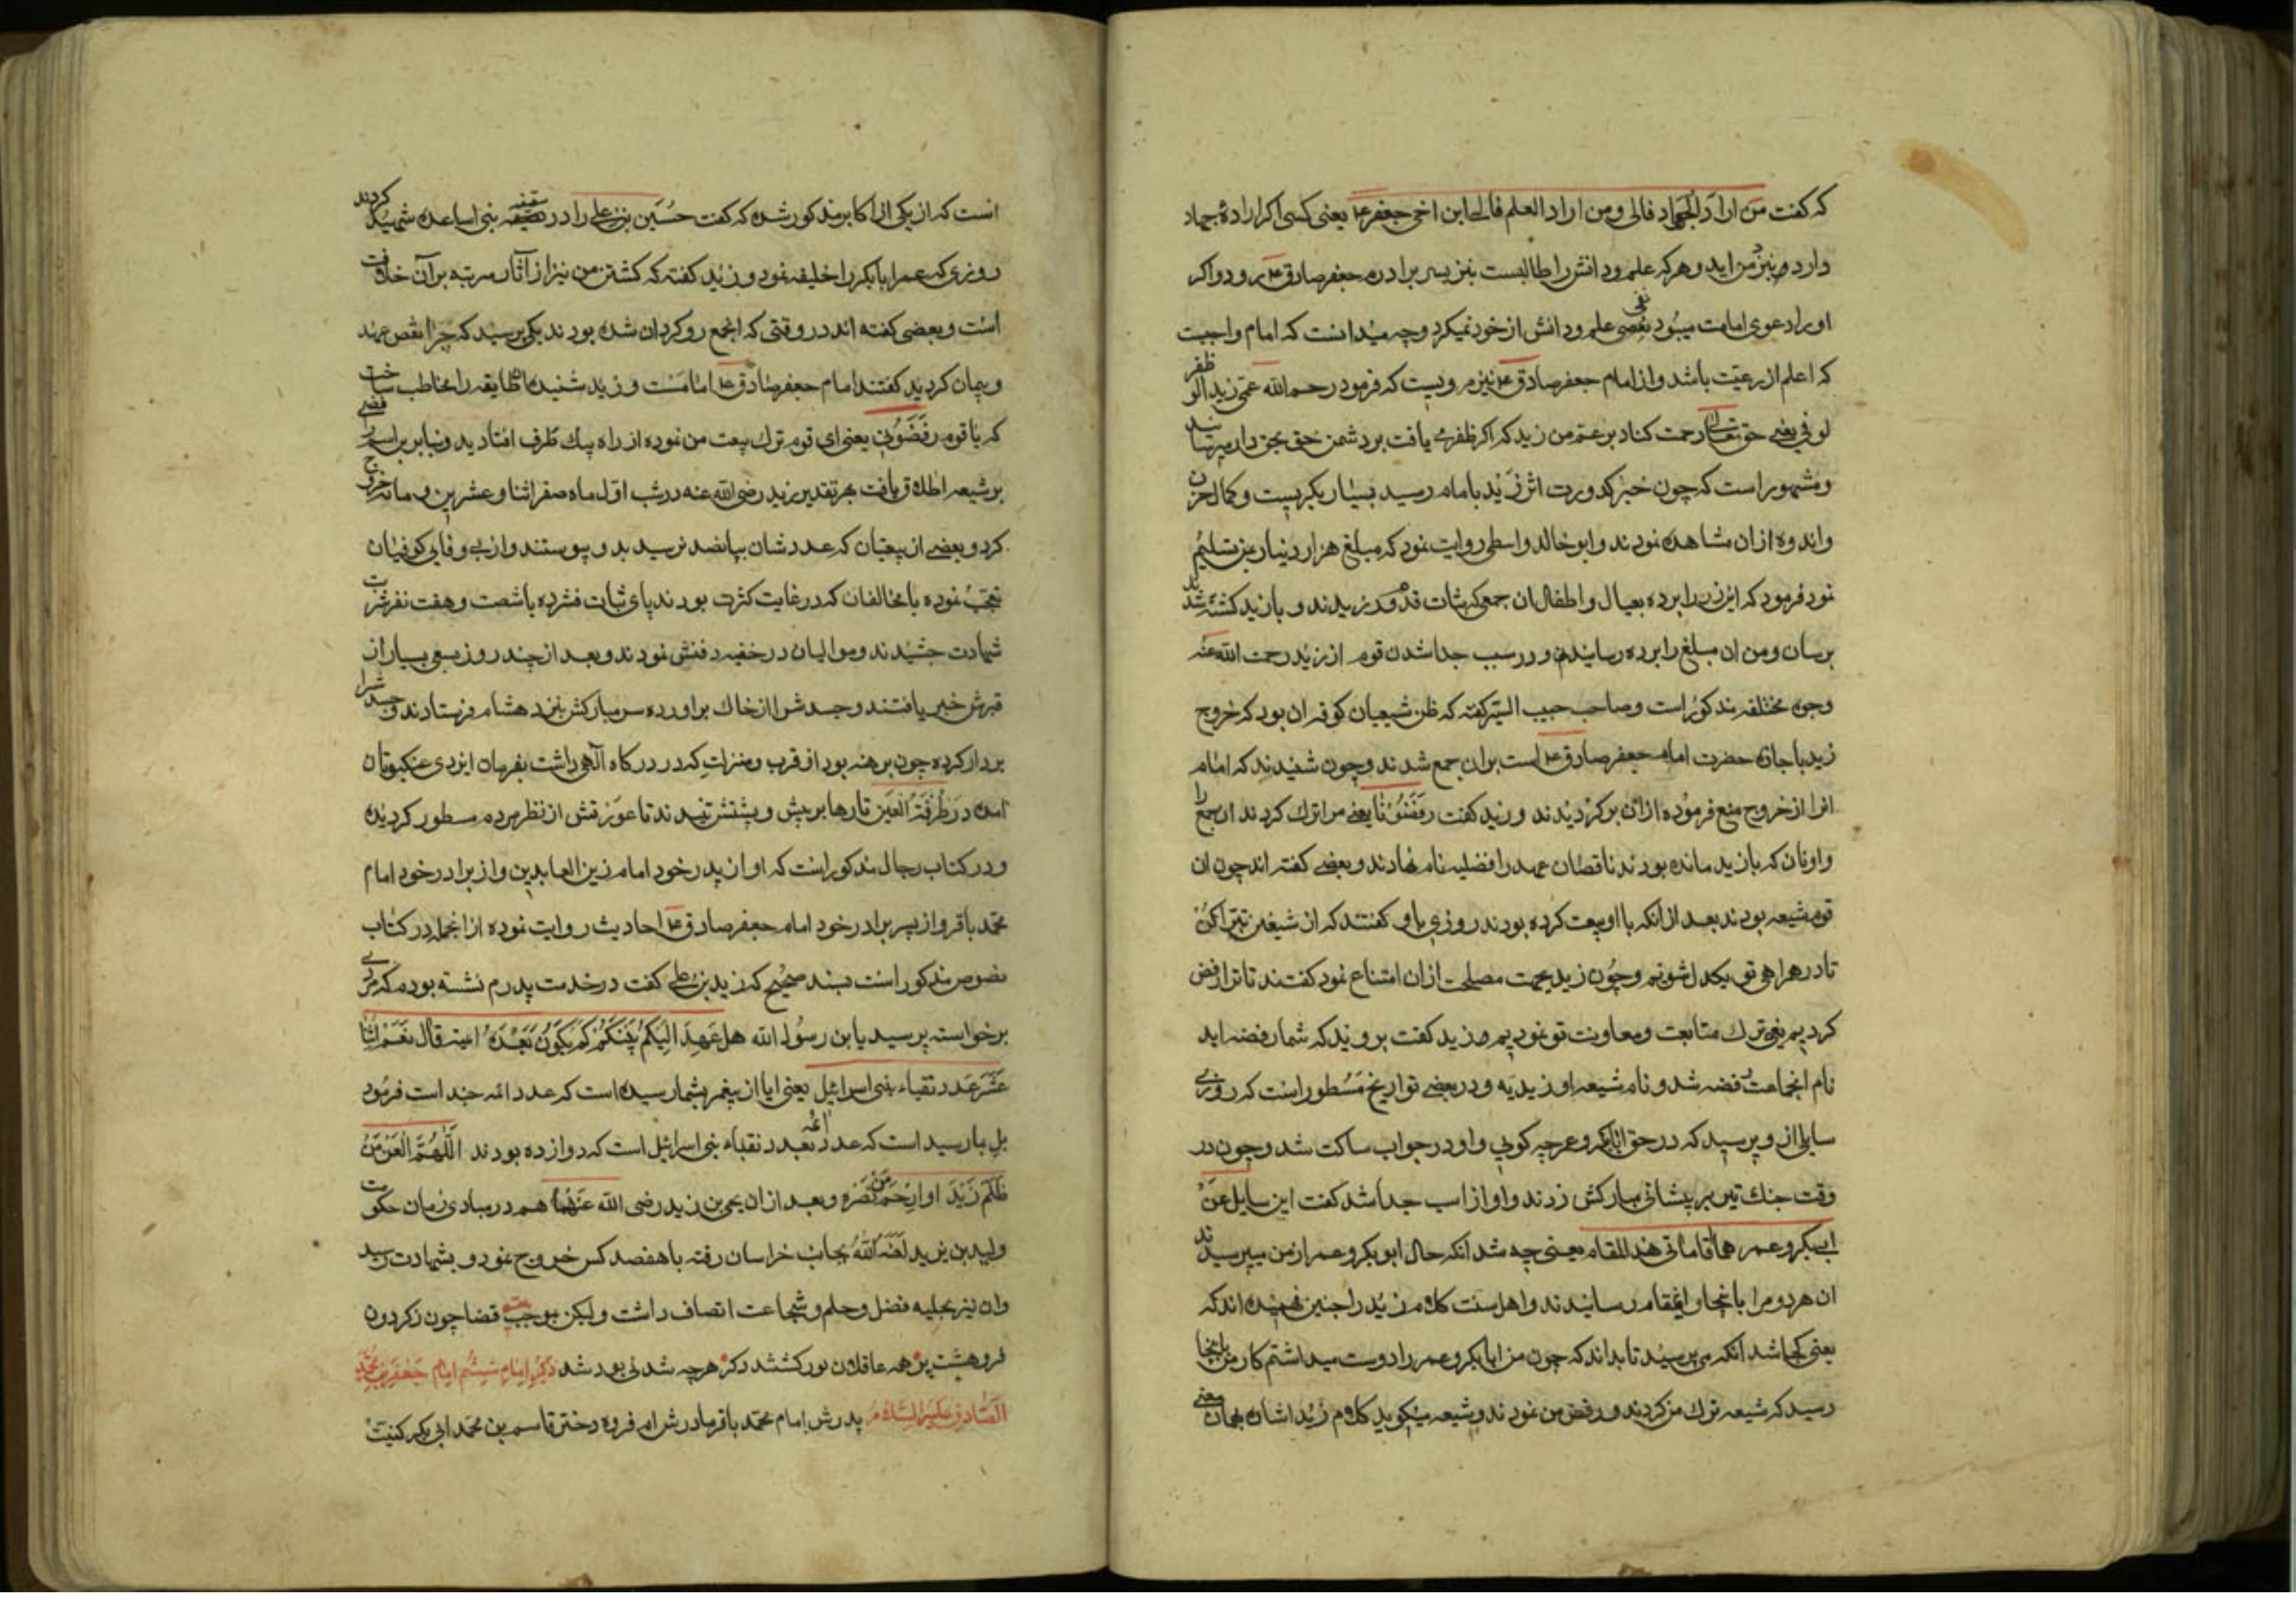 که کفت من اراد الجهاد فالی و من اراد العلم فالی ابن اخی جعفر ع یعنی کسی اکر ارادهٔ جهاد
دارد بنزد من اید و هرکه علم و دانش را طالبست بنزد پسر برادرم جعفر صادق ع رود و اکر
او را دعوی امامت میبود نفی علم و دانش از خود نمیکرد و چه میدانست که امام واجبست
که اعلم از رعیّت باشد و از امام جعفر صادق ع نیز مرویست که فرمود رحم الله عمّی زید الو ظفر
لو فی یعنی حق تعالی رحمت کناد بر عم من زید که اکر ظفر می یافت بر دشمن حق بحق دار میرسانید
و مشهور است که چون خبر کدورت اثر زَید با مام رسید بسیار بکریست و کمال حزن
و اندوه از ان مشاهده نمودند و ابو خالد واسطی روایت نمود که مبلغ هزار دینار بمن تسلیم
نمود فرمود که این زر را برده بعیال و اطفال ان جمعی که ثبات قدم ورزیدند و با زید کشته شدند
برسان و من ان مبلغ را برده رسانیدم و در سبب جدا شدن قوم از زید رحمت الله عنه
وجوه مختلفه مذکور است و صاحب حبیب السیر کفته که ظن شیعیان کوفه ان بود که خروج
زید با جازه حضرت امام جعفر صادق ع است بران جمع شدند و چون شنیدند که امام
انرا از خروج منع فرموده از ان برکردیدند و زید کفت رفضونا یعنی مرا ترک کردند ان جمع را
و اونان که با زید مانده بودند ناقصان عهد را فضلیه نام نهادند و بعضی کفته اند چون ان
قوم شیعه بودند بعد از انکه با او بیعت کرده بودند روزی باو کفتند که از شیخین تبرّا کن
تا در همراهی تو یکدل شویم و چون زید بجهت مصلحت از ان امتناع نمود کفتند تا ترا رفض
کردیم یعنی ترک متابعت و معاونت تو نمودیم و زید کفت بروید که شما رفضه اید
نام انجماعت رفضه شد و نام شیعه او زیدیّه و در بعضی تواریخ مسطور است که روزی
سایلی از و پرسید که در حق ابابکر و عمر چه کویی و او در جواب ساکت شد و چون در
وقت جنک تیر بر پیشانی مبارکش زدند و او از اسب جدا شد کفت این سایل عن
ابی بکر و عمر هما اقامانی هذا المقام یعنی چه شد انکه حال ابو بکر و عمر از من میپرسیدند
ان هر دو مرا با نجا و اینمقام رسانیدند و اهل سنت کلام زید را چنین فهمیده اند که
یعنی کجا شد انکه می پرسید تا بداند که چون من ابابکر و عمر را دوست میداشتم کار من باینجا
رسید که شیعه ترک من کردند و رفض من نمودند و شیعه میکوید کلام زید اشاره بهمان معنی
انست که از یکی از اکابر مذکور شده که کفت حسین بن علی را در سقیفه بنی اساعده شهید کردند
روزی که عمر ابابکر را خلیفه نمود و زید کفته که کشتن من نیز از آثار مرتبه بر آن خلافت
است و بعضی کفته اند در وقتی که انجمع روکردان شده بودند یکی پرسید که چرا نقص عهد
و پیمان کردید کفتند امام جعفر صادق ع اماما ست و زید شنیده ان طایفه را مخاطب ساخت
که یا قوم رفضونی یعنی ای قوم ترک بیعت من نموده از راه بیک طرف افتادید و بنابر این اسم رافضی
بر شیعه اطلاق یافت بهر تقدیر زید رضی الله عنه در شب اول ماه صفر اثنا و عشرین و مائه خروج
کرد و بعضی از بیعتیان که عدد شان بپانصد نرسید بد و پیوستند و از بی وفایی کوفیان
تعجّب نموده با مخالفان که در غایت کثرت بودند پای ثبات فشرده با شصت و هفت نفر شربت
شهادت چشیدند و موالیان در خفیه دفنش نمودند و بعد از چند روز بسعی بسیار از
قبرش خبر یافتند و جسدش از خاک براورده سر مبارکش بنزد هشام فرستادند و جسدش را
بر دار کرده چون برهنه بود از قرب و منزلت که در درکاه آلهی داشت بفرمان ایزدی عنکبوتان
امده در طُرفة العین تارها بر پیش و پشتش تنیدند تا عورتش از نظر مردم مسطور کردیده
و در کتاب رجال مذکور است که او از پدر خود امام زین العابدین و از برادر خود امام
محمّد باقر و از پسر برادر خود امام جعفر صادق ع احادیث روایت نموده از انجمله در کتاب
نصوص مذکور است بسند صحیح که زید بن علی کفت در خدمت پدرم نشسته بودم که مردی
برخواسته پرسید یا بن رسول الله هل عهد الیکم نبیکم کم یکون بعده ائمه قال نعم اثنا
عشر عدد نقباء بنی اسرائیل یعنی ایا از پیغمبر بشما رسیده است که عدد ائمه چند است فرمود
بل بما رسید است که عدد ائمه بعدد نقباء بنی اسرائیل است که دوازده بودند اللهم العن من
ظلم زید او ارحم من نصره و بعد از ان یحیی بن زید رضی الله عنهما هم در مبادی زمان حکومت
ولید بن یزید لعنه الله بجانب خراسان رفته با هفصد کس خروج نمود و بشهادت رسید
و ان نیز بحلیه فضل و حلم و شجاعت اتصاف داشت و لیکن بموجب قضا چون ز کردون
فروهشت پر همه عاقلان کور کشتند و کر هرچه شدنی بود شد ذکر امام ششم امام جعفر بن محمد
الصّادق علیه السّلام پدرش امام محمّد باقر مادرش ام فروه دختر قاسم بن محمد ابی بکر کنیت